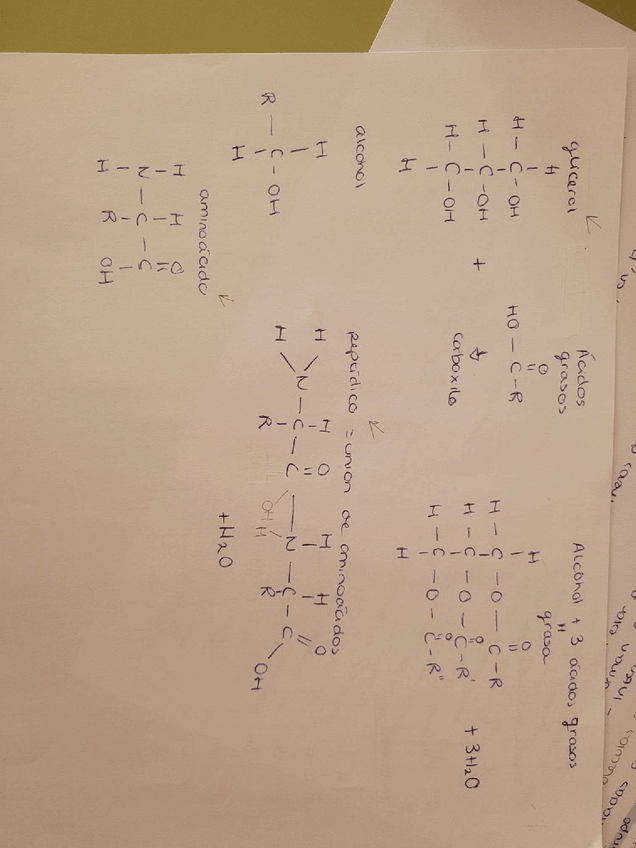 glicerol
Ácidos
grasos
Alcohol + 3 ácidos grasos
"
grasa
H
H
O
H - C - OH
HO - C - R
H - C - O - C - R
H - C - OH
+
H - C - O - C - R'
+ 3H2O
H - C - OH
carboxilo
H - C - O - C - R"
H
H
alcohol
peptídico = unión de aminoácidos
H
H
H
O
H
H
O
R - C - OH
N - C - C - N - C - C
H
H
R
OH
H
R
OH
+ H2O
aminoácido
H
H
O
N - C - C
H
R
OH